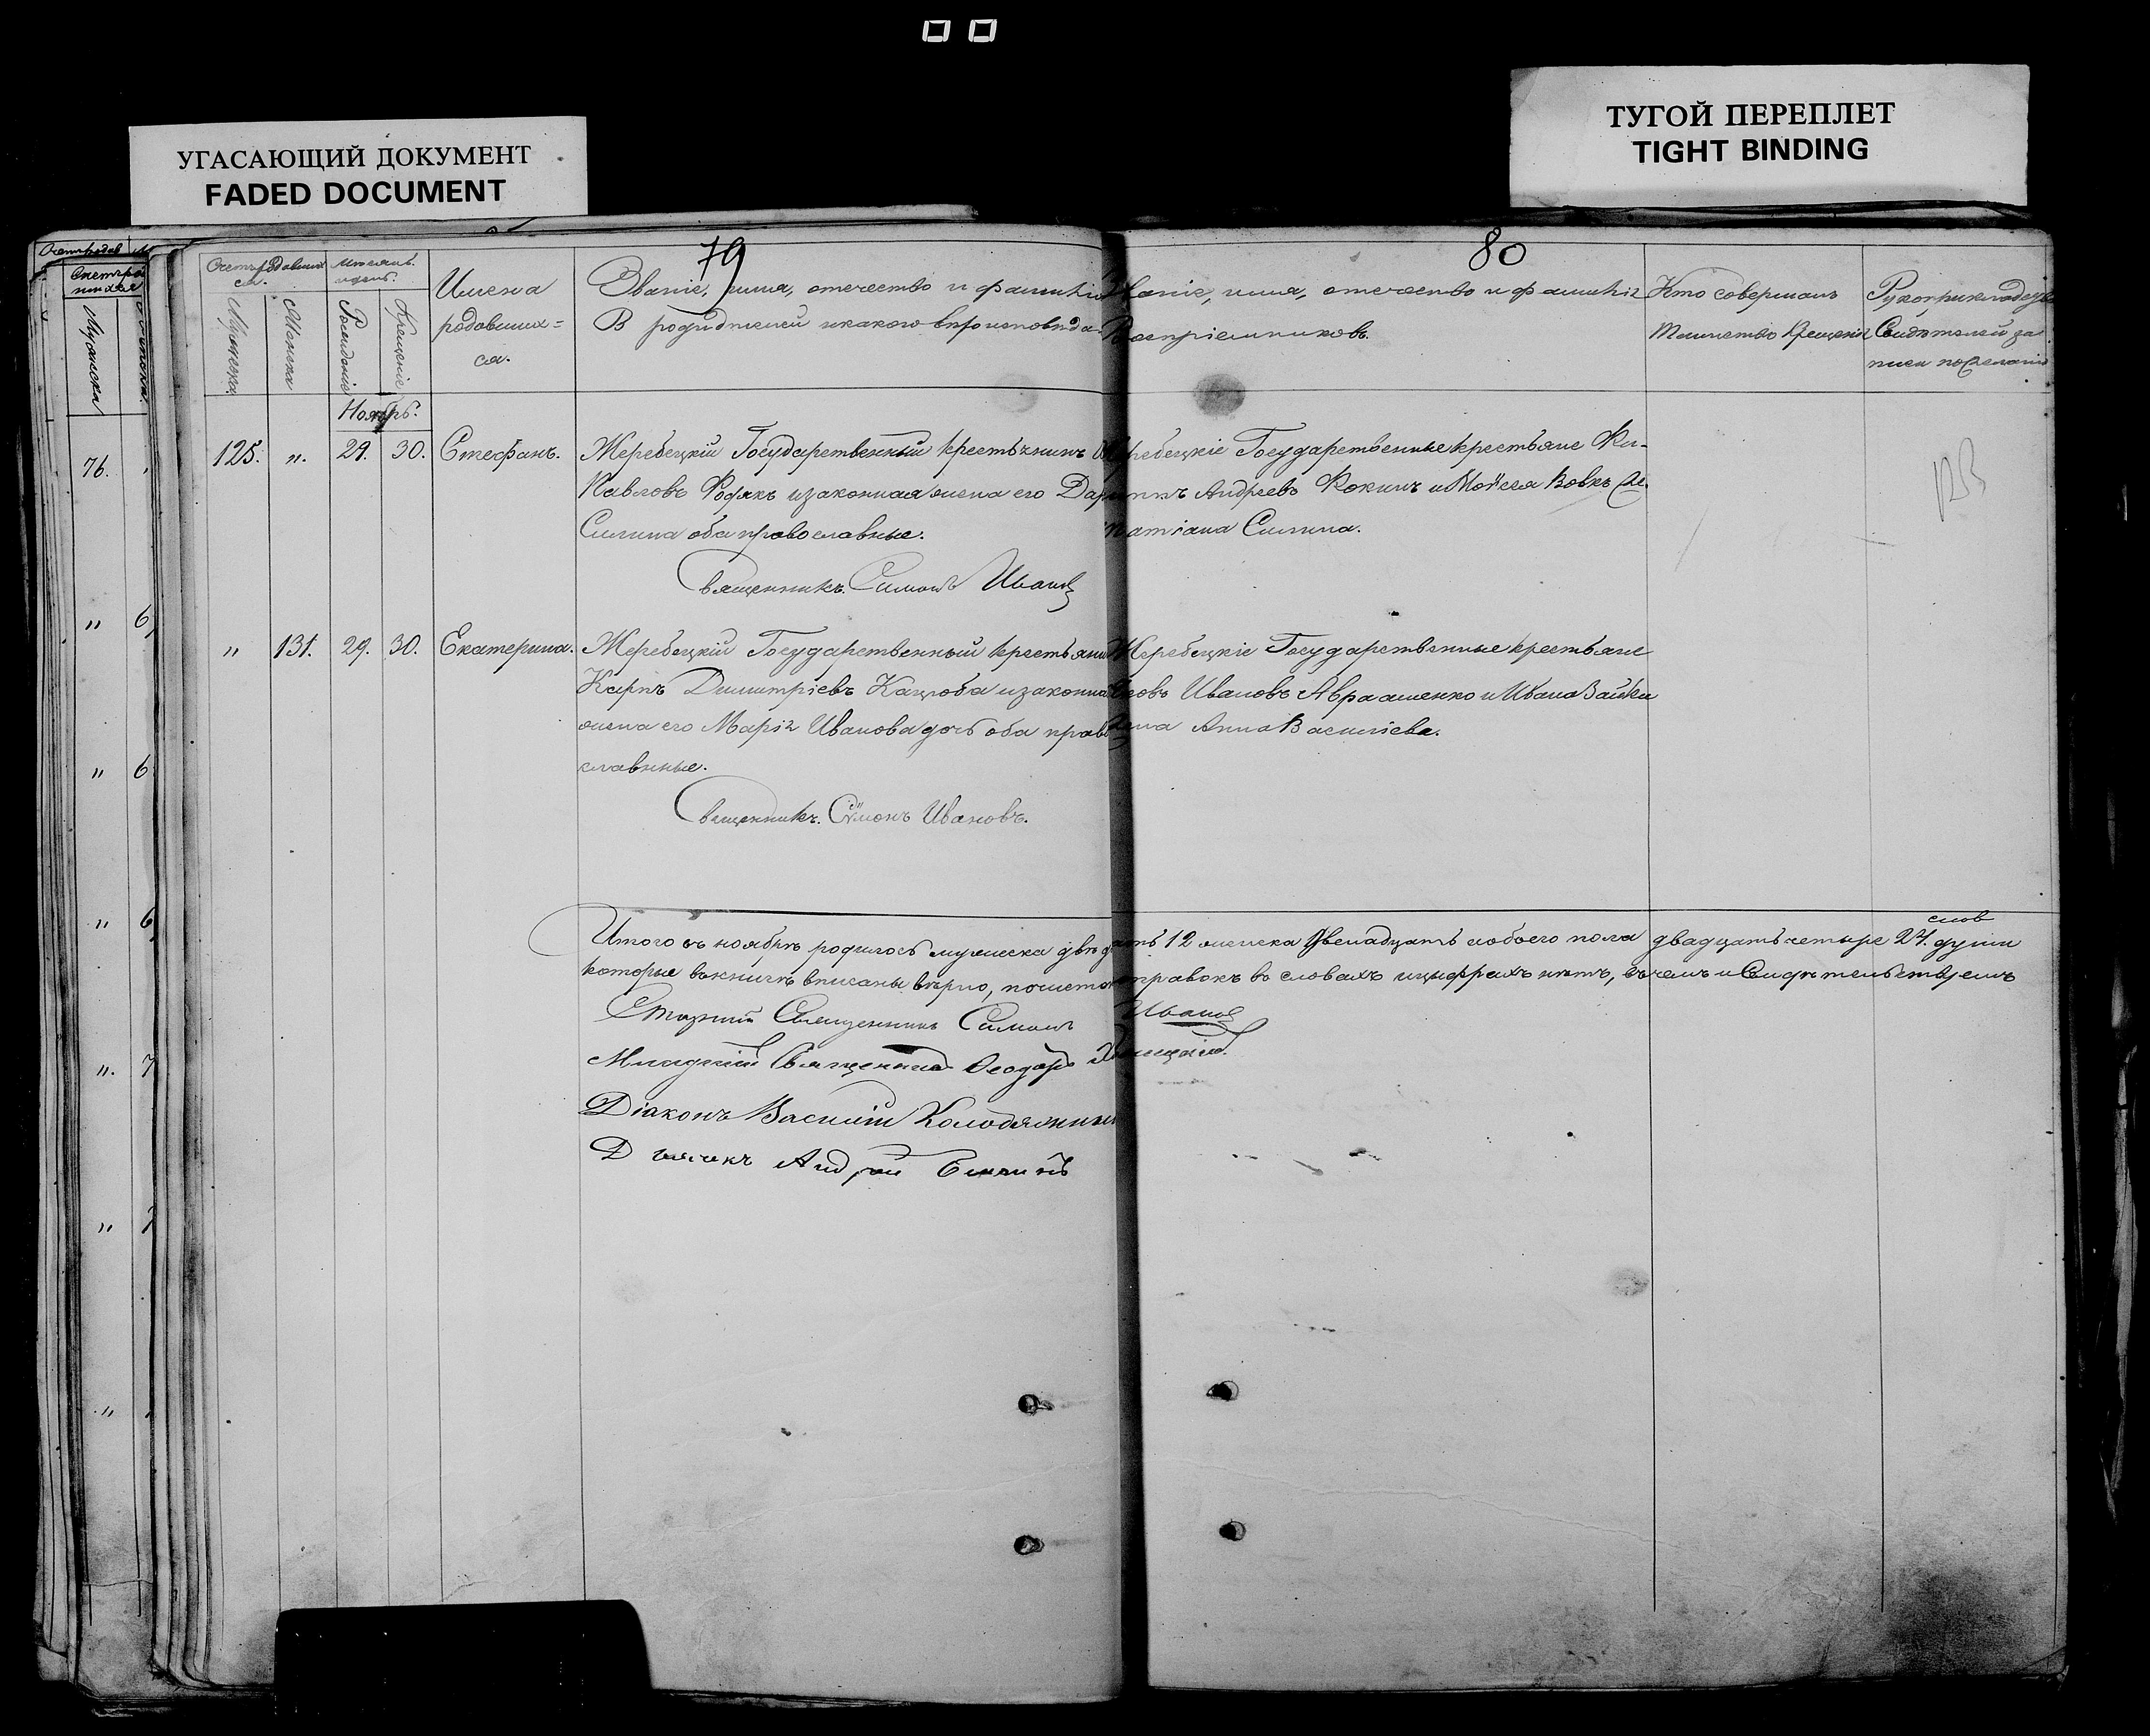 УГАСАЮЩИЙ ДОКУМЕНТ
FADED DOCUMENT
ТУГОЙ ПЕРЕПЛЕТ
TIGHT BINDING
79
80
Счетъ родившихся.
Мужеска
Женска
Мѣсяцъ и день.
Рожденіе
Крещеніе
Имена родившихся.
Званіе, имя, отечество и фамилія
родителей и какого вѣроисповѣда-
Званіе, имя, отечество и фамилія
Воспріемниковъ.
Кто совершалъ
таинство крещенія
Рукоприкладство
свидѣтелей за
писи по желанію
Ноябрь.
125. „ 29. 30. Стефанъ.
Жеребецкій Государственный крестьянинъ
Павловъ и законная жена его
Силина оба православные.
Священникъ Симонъ Ивановъ
Жеребецкіе Государственные крестьяне
Андреевъ и Мойсея Вовкъ
Силина.
„ 131. 29. 30. Екатерина.
Жеребецкій Государственный крестьянинъ
Карпъ Димитріевъ Кацюба и законная
жена его Марія Иванова дочь оба право
славные.
Священникъ Симонъ Ивановъ.
Жеребецкіе Государственные крестьяне
Яковъ Ивановъ Авраменко и Ивана Зайки
жена Анна Васильева.
Итого въ ноябрѣ родилось мужеска двѣнадцать 12 женска двѣнадцать обоего пола двадцать четыре 24. души
которые въ книгѣ вписаны вѣрно, почистокъ поправокъ въ словахъ и цыфрахъ нѣтъ, въ чемъ и свидѣтельствуемъ
Старшій Священникъ Симонъ Ивановъ
Младшій Священникъ Ѳеодоръ
Діаконъ Василій Колодяжный
Дьячекъ Андрей
76.